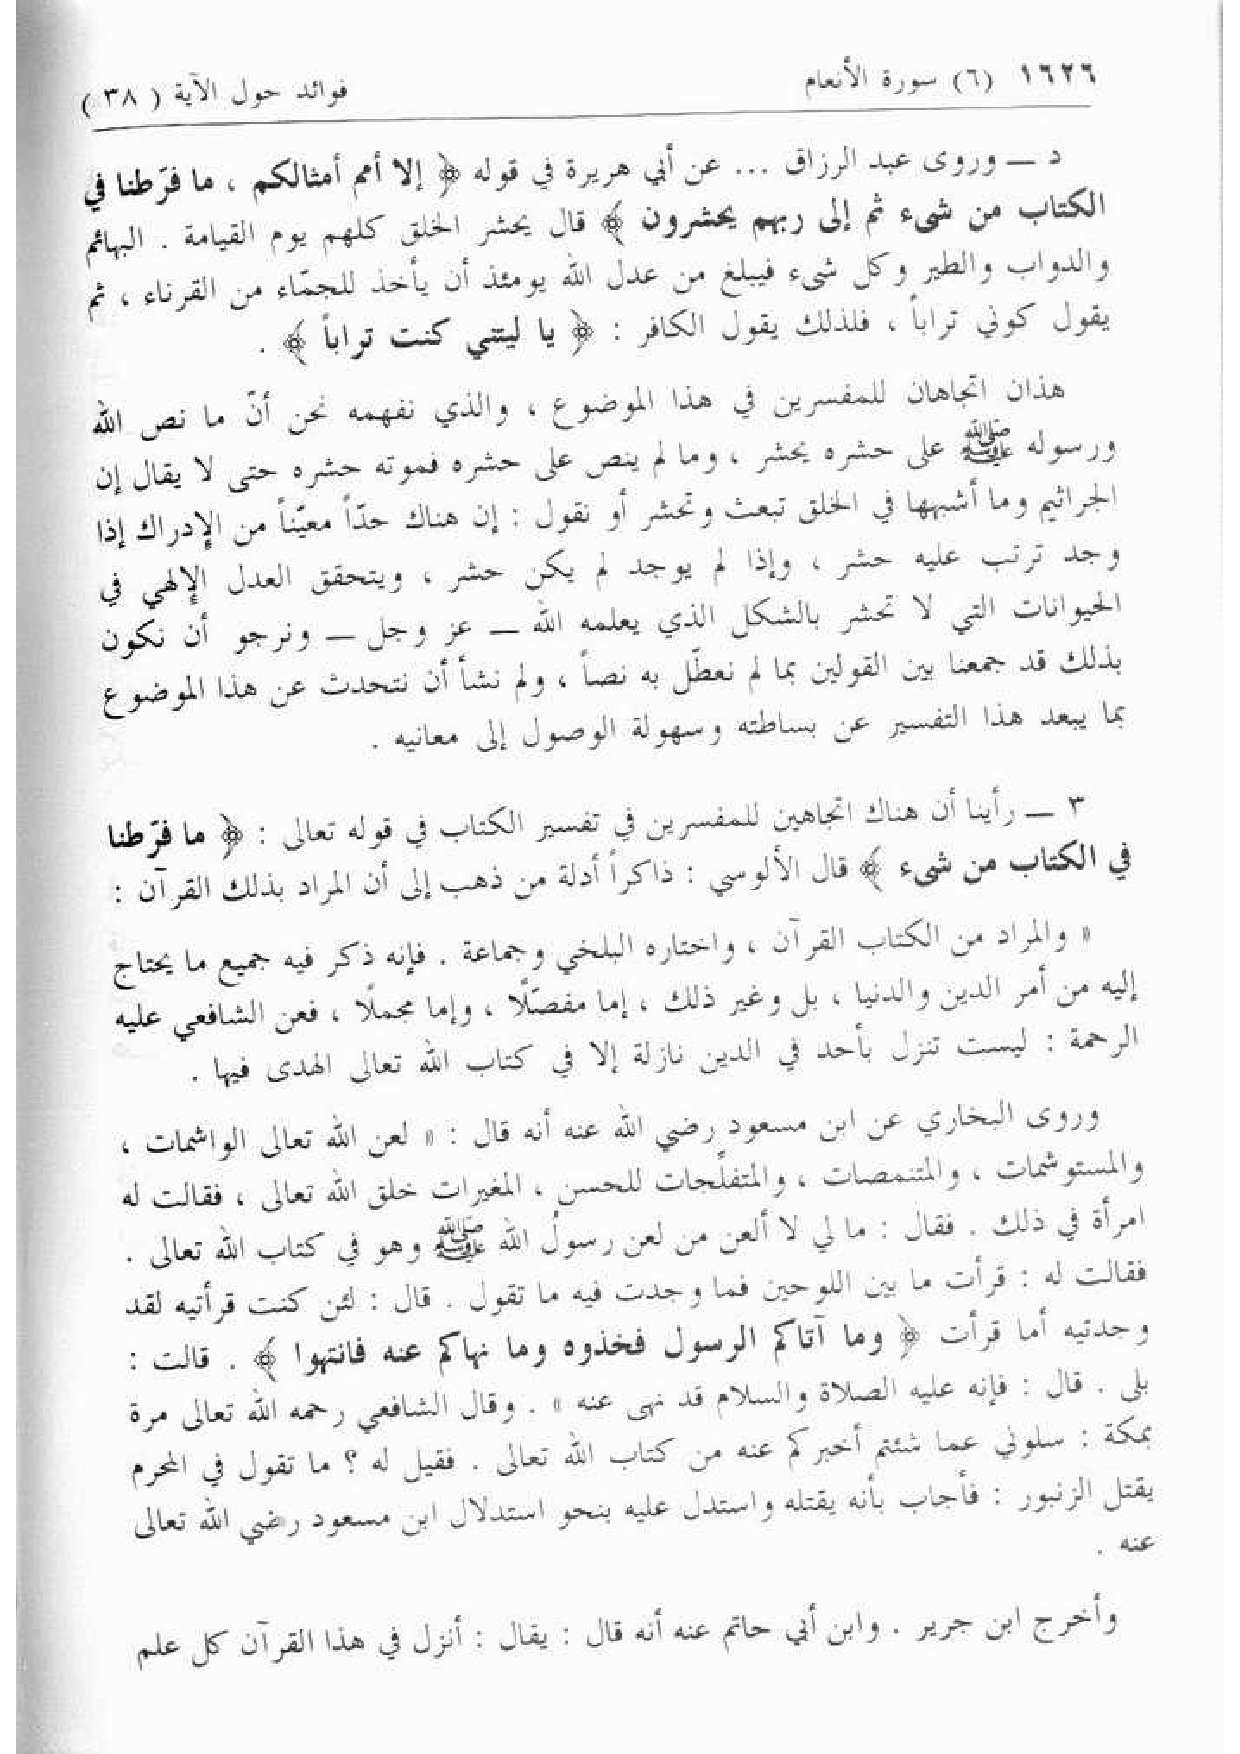 ١٦٢٦ (٦) سورة الأنعام فوائد حول الآية ( ٣٨ )
د ــ وروى عبد الرزاق ... عن أبي هريرة في قوله ﴿ إلا أمم أمثالكم ، ما فرّطنا في
الكتاب من شيء ثم إلى ربهم يحشرون ﴾ قال يحشر الخلق كلهم يوم القيامة . البهائم
والدواب والطير وكل شيء فيبلغ من عدل الله يومئذ أن يأخذ للجمّاء من القرناء ، ثم
يقول كوني تراباً ، فلذلك يقول الكافر : ﴿ يا ليتني كنت تراباً ﴾ .
هذان اتجاهان للمفسرين في هذا الموضوع ، والذي نفهمه نحن أنّ ما نص الله
ورسوله ﷺ على حشره يحشر ، وما لم ينص على حشره فموته حشره حتى لا يقال إن
الجراثيم وما أشبهها في الخلق تبعث وتحشر أو نقول : إن هناك حدّاً معيّناً من الإدراك إذا
وجد ترتب عليه حشر ، وإذا لم يوجد لم يكن حشر ، ويتحقق العدل الإلهي في
الحيوانات التي لا تحشر بالشكل الذي يعلمه الله ــ عز وجل ــ ونرجو أن نكون
بذلك قد جمعنا بين القولين بما لم نعطّل به نصاً ، ولم نشأ أن نتحدث عن هذا الموضوع
بما يبعد هذا التفسير عن بساطته وسهولة الوصول إلى معانيه .
٣ ــ رأينا أن هناك اتجاهين للمفسرين في تفسير الكتاب في قوله تعالى : ﴿ ما فرّطنا
في الكتاب من شيء ﴾ قال الألوسي : ذاكراً أدلة من ذهب إلى أن المراد بذلك القرآن :
« والمراد من الكتاب القرآن ، واختاره البلخي وجماعة . فإنه ذكر فيه جميع ما يحتاج
إليه من أمر الدين والدنيا ، بل وغير ذلك ، إما مفصّلًا ، وإما مجملًا ، فعن الشافعي عليه
الرحمة : ليست تنزل بأحد في الدين نازلة إلا في كتاب الله تعالى الهدى فيها .
وروى البخاري عن ابن مسعود رضي الله عنه أنه قال : « لعن الله تعالى الواشمات ،
والمستوشمات ، والمتنمصات ، والمتفلّجات للحسن ، المغيرات خلق الله تعالى ، فقالت له
امرأة في ذلك . فقال : ما لي لا ألعن من لعن رسولُ الله ﷺ وهو في كتاب الله تعالى .
فقالت له : قرأت ما بين اللوحين فما وجدت فيه ما تقول . قال : لئن كنت قرأتيه لقد
وجدتيه أما قرأت ﴿ وما آتاكم الرسول فخذوه وما نهاكم عنه فانتهوا ﴾ . قالت :
بلى . قال : فإنه عليه الصلاة والسلام قد نهى عنه » . وقال الشافعي رحمه الله تعالى مرة
بمكة : سلوني عما شئتم أخبركم عنه من كتاب الله تعالى . فقيل له ؟ ما تقول في المحرم
يقتل الزنبور : فأجاب بأنه يقتله واستدل عليه بنحو استدلال ابن مسعود رضي الله تعالى
عنه .
وأخرج ابن جرير . وابن أبي حاتم عنه أنه قال : يقال : أنزل في هذا القرآن كل علم